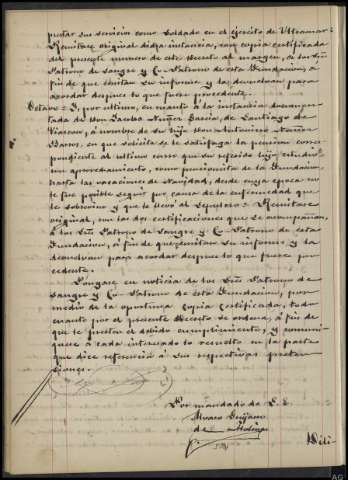 prestar sus servicios como soldado en el ejército de Ultramar:
Remítase original dicha instancia, con copia certificada
del presente número de este Decreto al margen, a los Sres
Patrono de Sangre y Co-Patrono de esta Fundación, a
fin de que emitan su informe y la devuelvan para
acordar después lo que fuere procedente.
Octavo = Y, por último, en cuanto á la instancia documen-
tada de Don Jacobo Núñez García, de Santiago de
á nombre de su hijo Don Antonino Núñez
en que solicita se le satisfaga la pension corres-
pondiente al último curso que su referido hijo estudió
con aprovechamiento, como pensionista de la Fundación
hasta las vacaciones de Navidad, desde cuya época no
le fue posible seguir por causa de la enfermedad que
le sobrevino y que le llevó al sepulcro = Remítase
original, con las dos certificaciones que se acompañan,
á los Sres Patrono de Sangre y Co-Patrono de esta
Fundación, á fin de que emitan su informe y la
devuelvan para acordar después lo que fuere pro-
cedente.
Póngase en noticia de los Sres Patrono de
Sangre y Co-Patrono de esta Fundación, por
medio de la oportuna copia certificada, todo
cuanto por el presente Decreto se ordena, á fin de
que le presten el debido cumplimiento, y comuní-
quese á cada interesado lo resuelto en la parte
que dice referencia á sus respectivas preten-
siones.
Por mandado de S. E.
Alvaro
de
AG